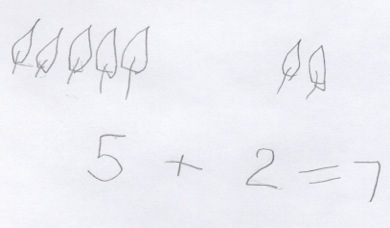 5 + 2 = 7